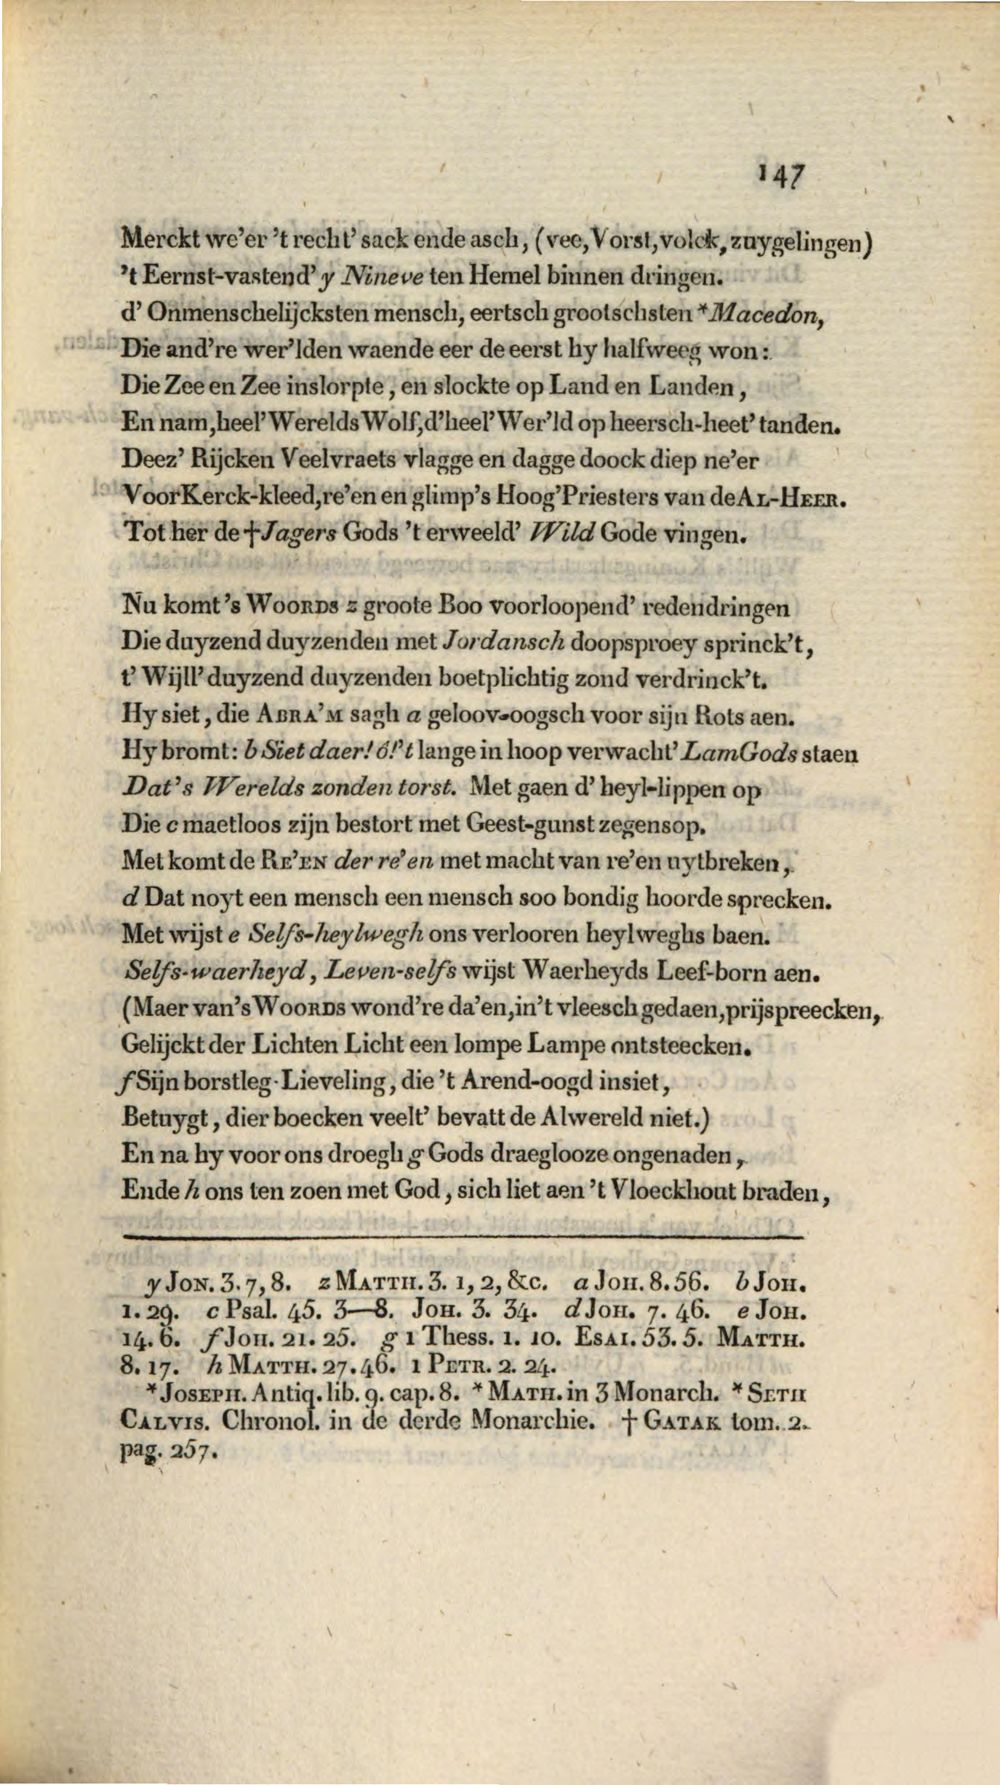 147
Merckt we'er 't recht' sack ende asch, (vee, Vorst, volck, zuygelingen)
't Eernst-vastend' y Nineve ten Hemel binnen dringen.
d' Onmenschelijcksten mensch, eertsch grootschsten *Macedon,
Die and're wer'lden waende eer de eerst hy halfweeg won:
Die Zee en Zee inslorpte, en slockte op Land en Landen,
En nam, heel' Werelds Wolf, d'heel' Wer'ld op heersch-heet' tanden.
Deez' Rijcken Veelvraets vlagge en dagge doock diep ne'er
Voor Kerck-kleed, re'en en glimp's Hoog'Priesters van de AL-HEER.
Tot her de †Jagers Gods 't erweeld' Wild Gode vingen.
Nu komt 's WOORDS z groote Boo voorloopend' redendringen
Die duyzend duyzenden met Jordansch doopsproey sprinck't,
t' Wijll' duyzend duyzenden boetplichtig zond verdrinck't.
Hy siet, die ABRA'M sagh a geloov-oogsch voor sijn Rots aen.
Hy bromt: b Siet daer! ó! 't lange in hoop verwacht' Lam Gods staen
Dat's Werelds zonden torst. Met gaen d' heyl-lippen op
Die c maetloos zijn bestort met Geest-gunst zegensop.
Met komt de RE'EN der re'en met macht van re'en uytbreken,
d Dat noyt een mensch een mensch soo bondig hoorde sprecken.
Met wijst e Selfs-heylwegh ons verlooren heylweghs baen.
Selfs-waerheyd, Leven-selfs wijst Waerheyds Leef-born aen.
(Maer van's WOORDS wond're da'en, in't vleesch gedaen, prijspreecken,
Gelijckt der Lichten Licht een lompe Lampe ontsteecken.
f Sijn borstleg-Lieveling, die 't Arend-oogd insiet,
Betuygt, dier boecken veelt' bevatt de Alwereld niet.)
En na hy voor ons droegh g Gods draeglooze ongenaden,
Ende h ons ten zoen met God, sich liet aen 't Vloeckhout braden,
y JON. 3. 7, 8. z MATTH. 3. 1, 2, &c. a JOH. 8. 56. b JOH.
1. 29. c Psal. 45. 3—8. JOH. 3. 34. d JOH. 7. 46. e JOH.
14. 6. f JOH. 21. 25. g 1 Thess. 1. 10. ESAI. 53. 5. MATTH.
8. 17. h MATTH. 27. 46. 1 PETR. 2. 24.
*JOSEPH. Antiq. lib. 9. cap. 8. *MATH. in 3 Monarch. *SETH
CALVIS. Chronol. in de derde Monarchie. †GATAK tom. 2.
pag. 257.